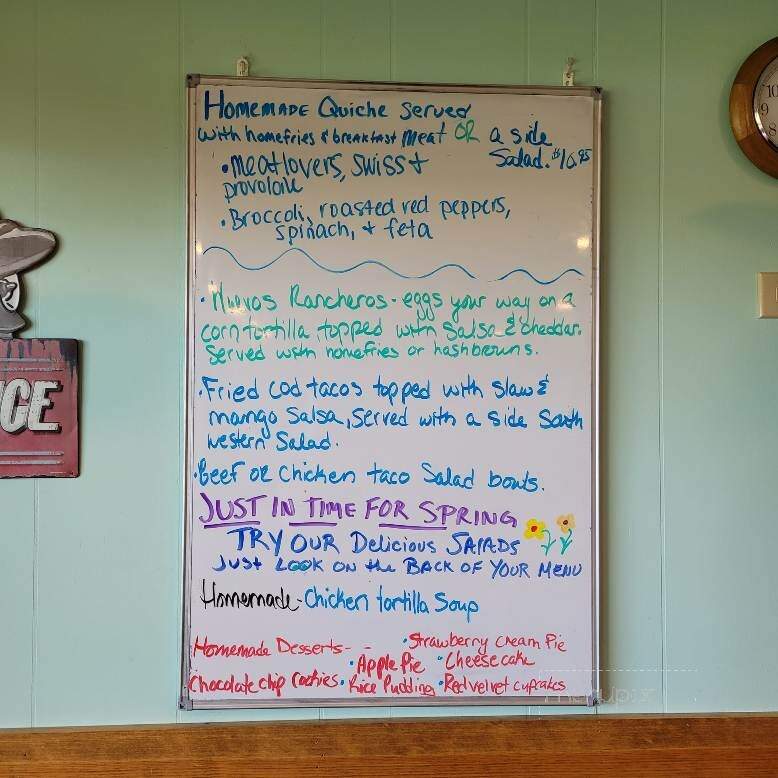 Homemade Quiche Served
with homefries & breakfast meat OR a side
Salad. $16.95
• Meatlovers, Swiss +
provolone
• Broccoli, roasted red peppers,
spinach, + feta
• Huevos Rancheros - eggs your way on a
corn tortilla topped with Salsa & cheddar.
Served with homefries or hashbrowns.
• Fried cod tacos topped with slaw &
mango Salsa, Served with a side South
western Salad.
• Beef or Chicken taco Salad bowls.
JUST IN TIME FOR SPRING
TRY OUR Delicious SALADS
Just LOOK ON the BACK OF YOUR MENU
Homemade - Chicken tortilla Soup
Homemade Desserts - - • Strawberry Cream Pie
• Apple Pie • Cheesecake
Chocolate chip Cookies • Rice Pudding • Red velvet cupcakes
ICE
10
9
8